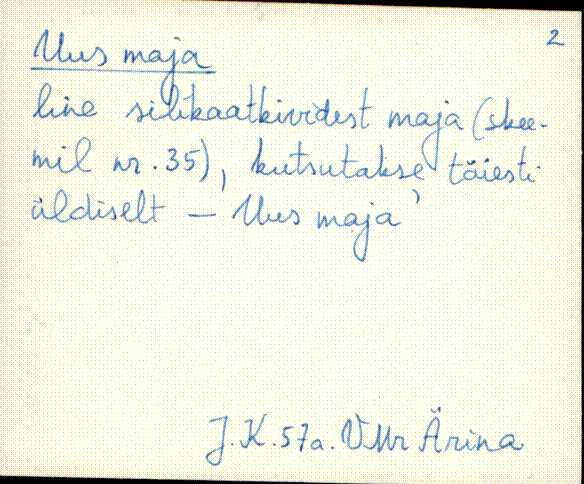 2
Uus maja
line silikaatkividest maja (skee-
mil nr. 35), kutsutakse täiesti
üldiselt — Uus maja
J. K. 57a. VMr Ärina